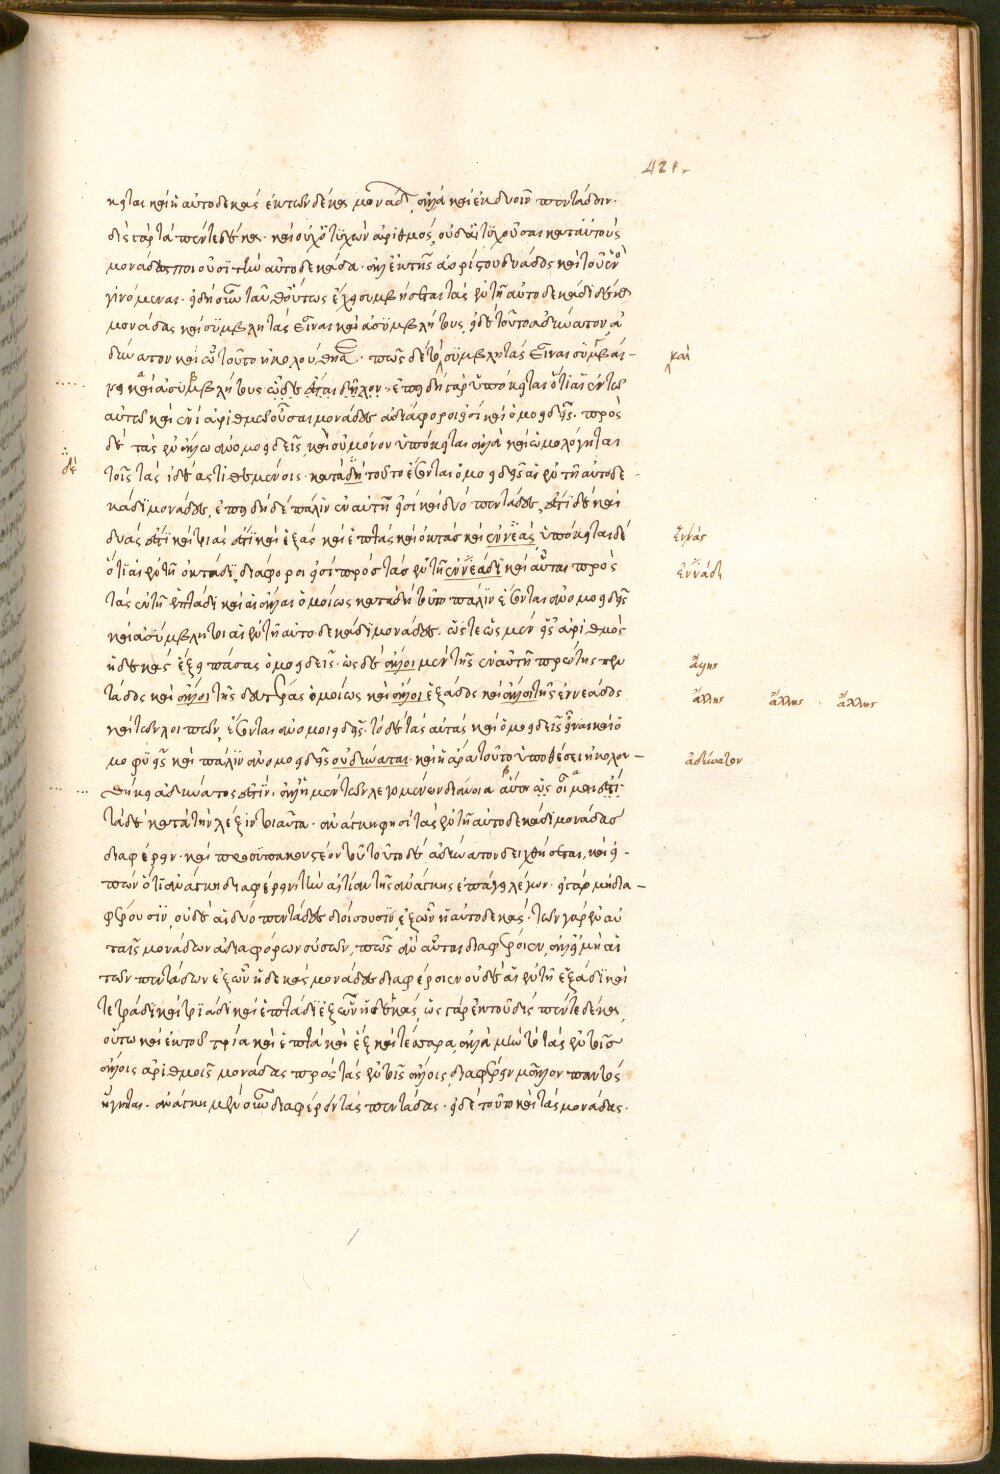 421.
κειται καὶ ἡ αὐτοδεκάς ἐκ τῶν δέκα μονάδ, ἀλλὰ καὶ ἐκ δυοῖν πεντάδοιν.
δὶς γὰρ τὰ πέντε δέκα. καὶ οὐχ ὁ τυχὼν ἀριθμός, οὐδ' αἱ τυχοῦσαι κατ' αὐτοὺς
μονάδες ποιοῦσι τὴν αὐτοδεκάδα. ἀλλ' ἐκ τῆς ἀορίστου δυάδος καὶ τοῦ ἑνὸ
γινόμεναι. εἰ δὴ οὖν ταῦθ' οὕτως ἔχει συμβήσεται τὰς ἐν τῇ αὐτοδεκάδι δέκα
μονάδας καὶ συμβλητὰς εἶναι καὶ ἀσυμβλήτους, εἰ δὲ τοῦτο ἀδύνατον, ἀ
δύνατον καὶ ᾧ τοῦτο ἠκολούθησ. πῶς δὲ τὸ συμβλητὰς εἶναι συμβαί-
νει καὶ ἀσυμβλήτους ὧδε ἔσται δῆλον. ἐπειδὴ γὰρ ὑπόκειται ὅτι αἱ ἐν τῶ
αὐτῶ καὶ ἑνὶ ἀριθμῶ οὖσαι μονάδες ἀδιάφοροι εἰσὶ καὶ ὁμοειδεῖς. πρὸς
δὲ τὰς ἐν ἄλλω ἀνομοειδεῖς, καὶ οὐ μόνον ὑπόκειται ἀλλὰ καὶ ὡμολόγηται
τοῖς τὰς ἰδέας τιθεμένοις. κατὰ δὴ τοῦτο ἔσονται ὁμοειδεῖς αἱ ἐν τῇ αὐτοδε
κάδι μονάδες, ἐπειδὴ δὲ πάλιν ἐν αὐτῇ εἰσὶ καὶ δύο πεντάδες, ἔτι δὲ καὶ
δυὰς ἔτι καὶ τριὰς ἔτι καὶ ἑξὰς καὶ ἑπτὰς καὶ ὀκτὰς καὶ ἐννεὰς ὑπόκειται δὲ
ὅτι αἱ ἐν τῇ ὀκτάδι, διάφοροι εἰσὶ πρὸς τὰς ἐν τῇ ἐννεάδι καὶ αὗται πρὸς
τὰς ἐν τῇ ἑπτάδι καὶ αἱ ἄλλαι ὁμοίως κατὰ δὴ τοῦτο πάλιν ἔσονται ἀνομοειδεῖς
καὶ ἀσύμβλητοι αἱ ἐν τῇ αὐτοδεκάδι μονάδες. ὥστε ὡς μὲν εἷς ἀριθμὸς
ἡ δεκὰς ἕξει πάσας ὁμοειδεῖς. ὡς δὲ ἄλλοι μὲν τῆς ἐν αὐτῇ πρώτης πεν
τάδος καὶ ἄλλοι τῆς δευτέρας ὁμοίως καὶ ἄλλοι ἑξάδος καὶ ἄλλοι τῆς ἐννεάδος
καὶ τῶν λοιπῶν, ἔσονται ἀνομοιοειδεῖς. τὸ δὲ τὰς αὐτὰς καὶ ὁμοειδεῖς εἶναι καὶ ὁ
μοφυεῖς καὶ πάλιν ἀνομοειδεῖς οὐ δύναται. καὶ ἡ ἄρα τοῦτο ὑποθέσει ἠκολού-
θηκε ἀδύνατος ἐστίν. ἀλλ' ἡ μὲν τῶν λεγομένων διάνοια αὕτη ὡς οἶμαι ἐστί
τὰ δὲ κατὰ τὴν λέξιν τοιαῦτα. ἀνάγκη φησὶ τὰς ἐν τῇ αὐτοδεκάδι μονάδας
διαφέρειν. καὶ προσυπακουστέον τοῦτο δὲ ἀδύνατον δειχθήσεται, καὶ εἰ-
πὼν ὅτι ἀνάγκη διαφέρειν τὴν αἰτίαν τῆς ἀνάγκης ἐπάγει λέγων. εἰ γὰρ μὴ δια-
φέρουσιν, οὐδὲ αἱ δύο πεντάδες διοίσουσιν, ἐξ ὧν ἡ αὐτοδεκάς. τῶν γὰρ ἐν αὐ
ταῖς μονάδων ἀδιαφόρων οὐσῶν, πῶς ἂν αὗται διαφέροιεν, ἀλλ' εἰ μὴ αἱ
τῶν πεντάδων ἐξ ὧν ἡ δεκὰς μονάδες διαφέροιεν οὐδὲ αἱ ἐν τῇ ἑξάδι καὶ
τετράδι καὶ τριάδι καὶ ἑπτάδι ἐξ ὧν ἡ δεκάς, ὡς γὰρ ἐκ τοῦ δὶς πέντε δέκα,
οὕτω καὶ ἐκ τοῦ τρία καὶ ἑπτὰ καὶ ἓξ καὶ τέσσαρα, ἀλλὰ μὴν τὸ τὰς ἐν τοῖς
ἄλλοις ἀριθμοῖς μονάδας πρὸς τὰς ἐν τοῖς ἄλλοις, διαφέρειν μᾶλλον παντὸς
ἥγηται. ἀνάγκη μὲν οὖν διαφέρειν τὰς πεντάδας. εἰ δὲ τοῦτο καὶ τὰς μονάδας.
καὶ
δὲ
ἐννὰς
ἐννάδι
ἄλλης
ἄλλης ἄλλης ἄλλης
ἀδύνατον